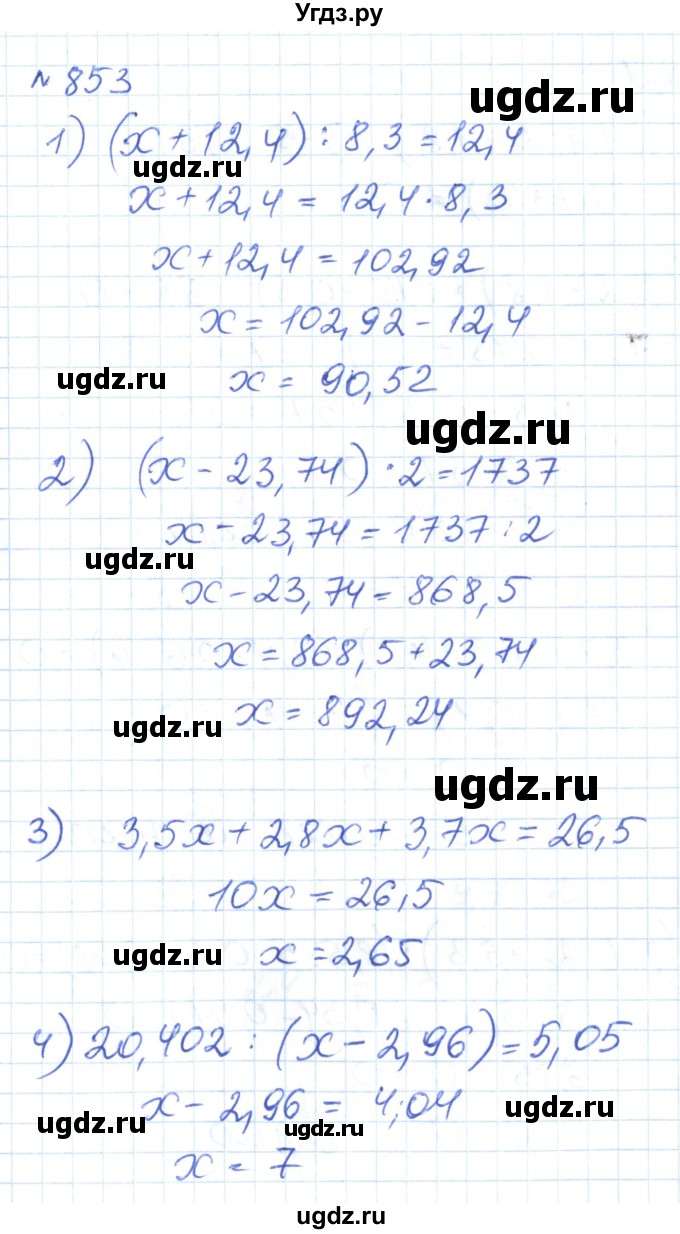 Угдз.ру
№ 853
ugdz.ru
1) (x + 12,4) : 8,3 = 12,4
ugdz.ru
x + 12,4 = 12,4 · 8,3
x + 12,4 = 102,92
x = 102,92 - 12,4
ugdz.ru
x = 90,52
ugdz.ru
2) (x - 23,74) · 2 = 1737
x - 23,74 = 1737 : 2
ugdz.ru
x - 23,74 = 868,5
x = 868,5 + 23,74
x = 892,24
ugdz.ru
ugdz.ru
3) 3,5x + 2,8x + 3,7x = 26,5
10x = 26,5
ugdz.ru
x = 2,65
4) 20,402 : (x - 2,96) = 5,05
x - 2,96 = 4,04
ugdz.ru
ugdz.ru
ugdz.ru
x = 7
ugdz.ru